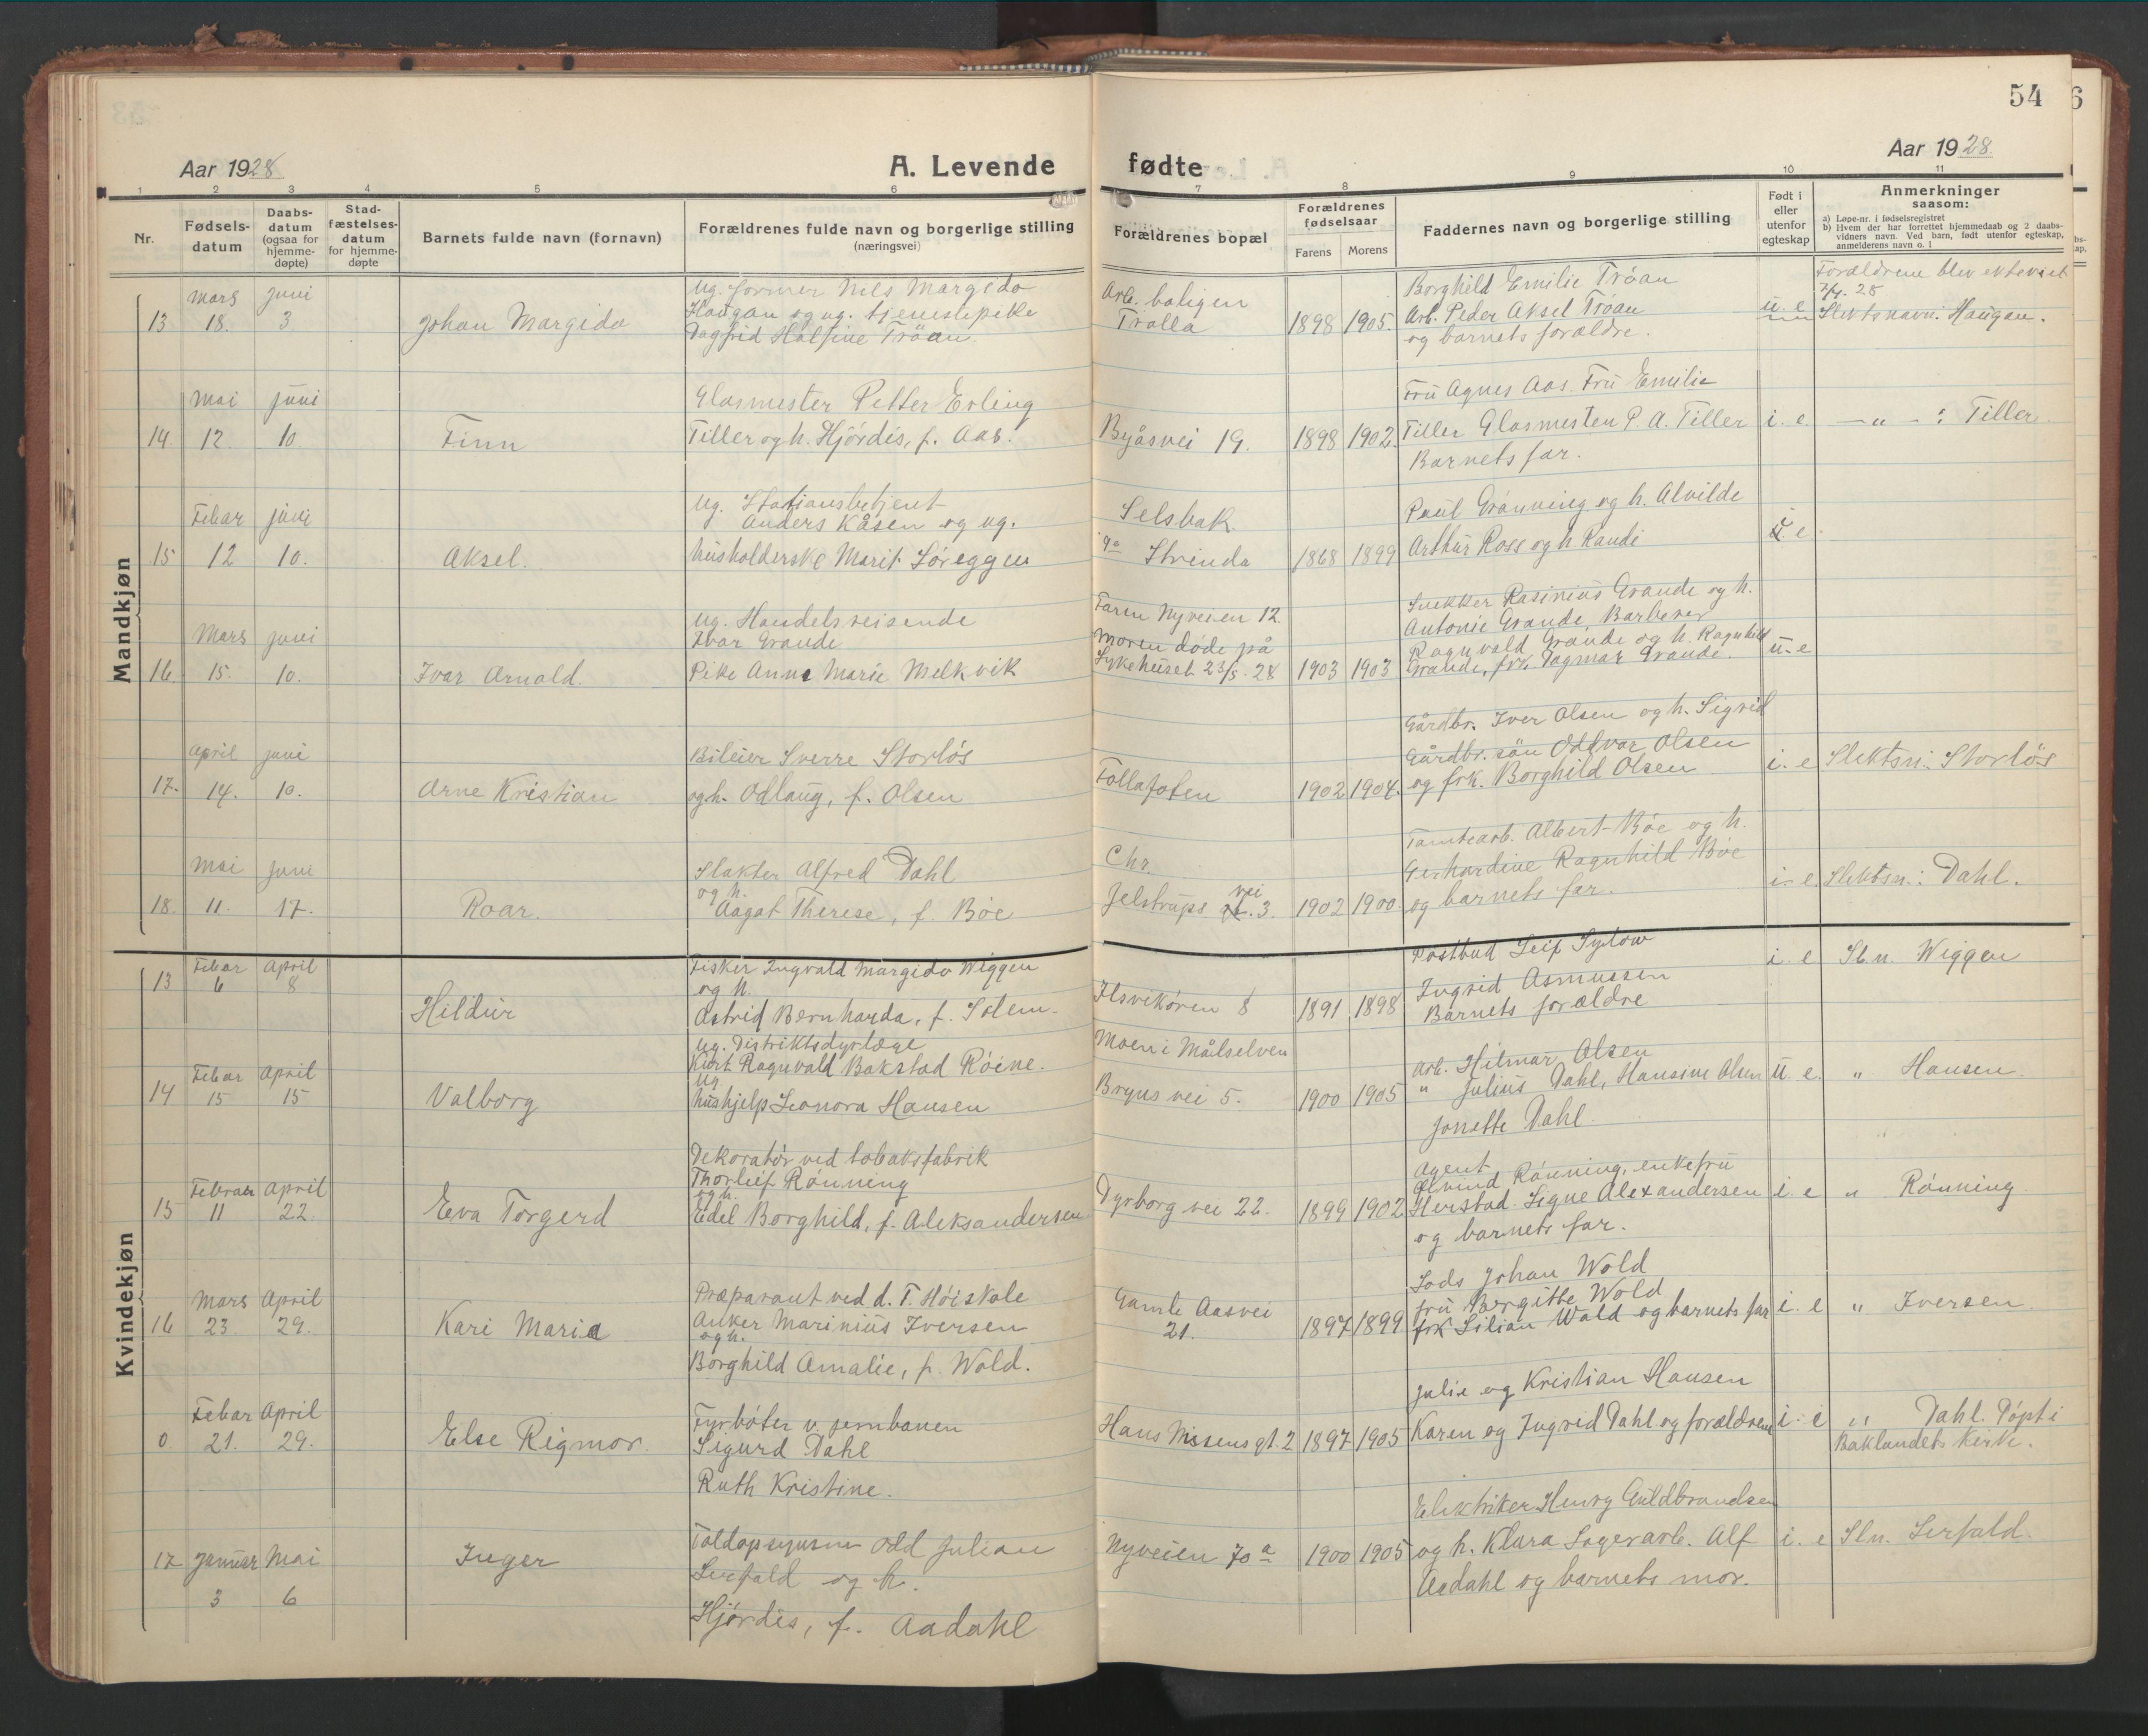 54
Aar 1928
A. Levende fødte
Aar 1928.
1 2 3 4 5 6 7 8 9 10 11
Nr.
Fødselsdatum
Daabsdatum (ogsaa for hjemmedøpte)
Stadfæstelsesdatum for hjemmedøpte
Barnets fulde navn (fornavn)
Forældrenes fulde navn og borgerlige stilling
(næringsvei)
Forældrenes bopæl
Forældrenes fødselsaar
Farens Morens
Faddernes navn og borgerlige stilling
Født i eller utenfor egteskap
Anmerkninger saasom:
a) Løpe-nr. i fødselsregistret
b) Hvem der har forrettet hjemmedaab og 2 daabsvidners navn. Ved barn, født utenfor egteskap, anmelderens navn o. l
Mandkjøn
13 Mars 18. juni 3
Johan Margido
ug. former Nils Margido
Haugan og ug. tjenestepike
Dagfrid Halfine Trøan.
Arb. boligen
Trolla
1898 1905.
Borghild Emilie Trøan
Arb. Peder Aksel Trøan
og barnets forældre.
u. e
Forældrene blev ektevïet
7/4. 28
Slektsnavn: Haugan.
14. mai 12. juni 10
Finn
Glasmester Petter Erling
Tiller og h. Hjørdis, f. Aas.
Byåsvei 19.
1898 1902.
Fru Agnes Aas. Fru Emilie
Tiller Glasmesten P. A. Tiller
Barnets far.
i. e.
— „ — : Tiller.
15 Febar 12 juni 10.
Aksel.
ug. Stationsbetjent
Anders Kåsen og ug.
husholderske Marit Søreggen
Selsbak.
Strinda
1868 1899
Paul Grønning og h. Alvilde
Arthur Ross og h Randi
u. e.
16. Mars 15. juni 10.
Ivar Arnold.
ug. Handelsreisende
Ivar Grande
Pike Anna Marie Melkvik
Faren Nyveien 12.
Moren døde på
Sykehuset 23/5. 28
1903 1903
Snekker Rasinius Grande og h.
Antonie Grande, Barberer
Ragnvald Grande og h. Ragnhild
Grande, frk. Dagmar Grande.
u. e
17. April 14. juni 10.
Arne Kristian
Bileier Sverre Storløs
og h. Odlaug, f. Olsen
Follafoten
1902 1904.
Gårdbr. Iver Olsen og h. Sigrid
Gårdbr. søn Oddvar Olsen
og frk. Borghild Olsen
i. e
Slektsn: Storløs
18. Mai 11. juni 17.
Roar.
Slakter Alfred Dahl
og h.
Aagot Therese, f. Bøe
Chr.
Jelstrups vei 3.
1902 1900.
Tomtearb. Albert Bøe og h.
Gerhardine Ragnhild Bøe
og barnets far.
i. e.
Slektsn.: Dahl.
Kvindekjøn
13 Febar 6 April 8
Hildur
Fisker Ingvald Margido Wiggen
og h.
Astrid Bernharda, f. Solem.
Ilsvikøren 8
1891 1898
Postbud Leif Sylow
Ingrid Asmussen
Barnets forældre
i. e
Sl.n. Wiggen
14 Febar 15 April 15
Valborg
ug. Distriktsdyrlæge
Kurt Ragnvald Bakstad Røine.
ug
hushjelp Leonora Hansen
Moen i Målselven
Bryns vei 5.
1900 1905
Arb. Hilmar Olsen
„ Julius Dahl, Hansine Olsen
Jonette Dahl.
u. e.
„ Hansen.
15 Februar 11 April 22
Eva Torgerd
Dekoratør ved tobaksfabrik
Thorleif Rønning
og h.
Edel Borghild, f. Aleksandersen
Dyrborg vei 22.
1899 1902
Agent
Øivind Rønning, enkefru
Herstad. Signe Alexandersen
og barnets far.
i. e
„ Rønning
16 Mars 23 April 29.
Kari Maria
Præparant ved d. T. Høiskole
Anker Marinius Iversen
og h.
Borghild Amalie, f. Wold.
Gamle Aasvei
21.
1897 1899
Lods Johan Wold
fru Bergitte Wold
frk Lilian Wold og barnets far
i. e
„ Iversen.
0 Febar 21. April 29.
Else Rigmor.
Fyrbøter v. jernbanen
Sigurd Dahl
Ruth Kristine.
Hans Nissens gt. 2
1897 1905
Julie og Kristian Hansen
Karen og Ingrid Dahl og forældrene
i. e
„ Dahl. Døpt i
Baklandets Kirke.
17 Januar 3 Mai 6
Inger
Toldopsynsm Odd Julian
Lerfald og h.
Hjørdis, f. Aadahl
Nyveien 70 a
1900 1905
Elektriker Henry Guldbrandsen
og h. Klara Lagerarb. Alf
Aadahl og barnets mor.
i. e
Sl.n. Lerfald.